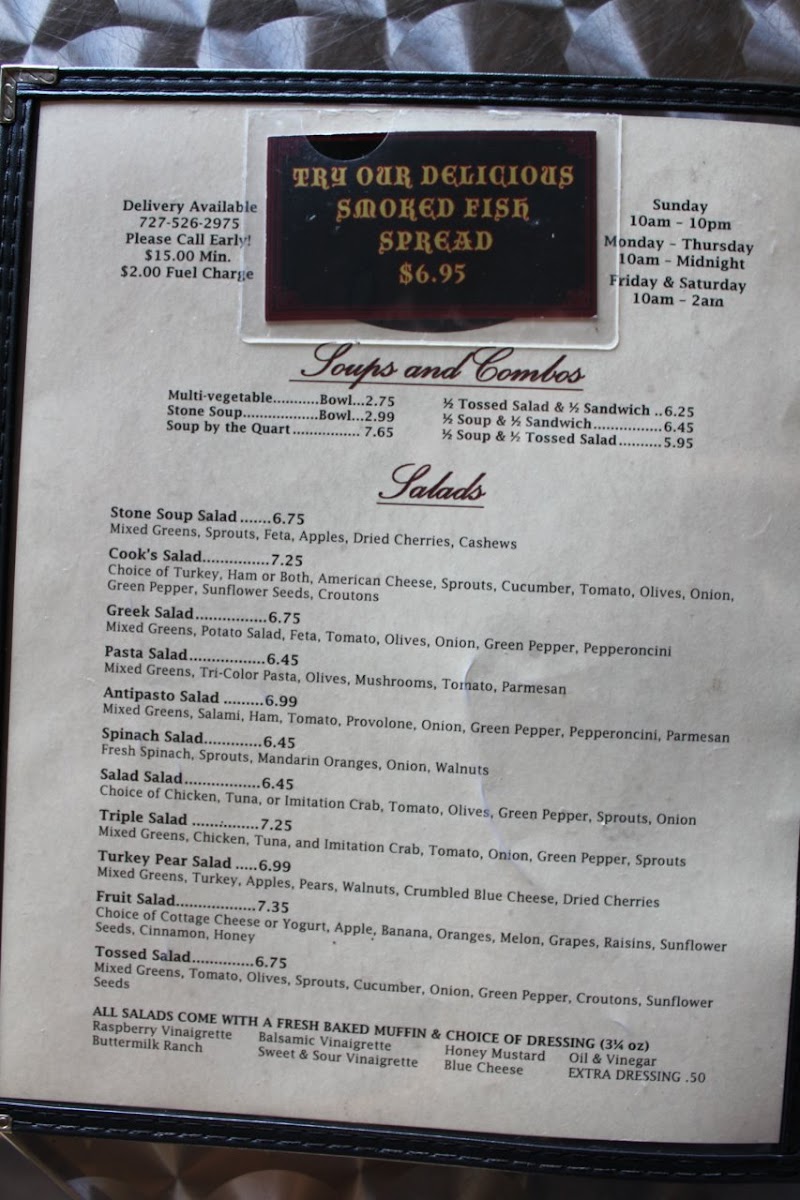 TRY OUR DELICIOUS
SMOKED FISH
SPREAD
$6.95
Delivery Available
727-526-2975
Please Call Early!
$15.00 Min.
$2.00 Fuel Charge
Sunday
10am – 10pm
Monday – Thursday
10am – Midnight
Friday & Saturday
10am – 2am
Soups and Combos
Multi-vegetable...........Bowl...2.75
Stone Soup..................Bowl...2.99
Soup by the Quart................ 7.65
½ Tossed Salad & ½ Sandwich ..6.25
½ Soup & ½ Sandwich................6.45
½ Soup & ½ Tossed Salad..........5.95
Salads
Stone Soup Salad .......6.75
Mixed Greens, Sprouts, Feta, Apples, Dried Cherries, Cashews
Cook's Salad...............7.25
Choice of Turkey, Ham or Both, American Cheese, Sprouts, Cucumber, Tomato, Olives, Onion,
Green Pepper, Sunflower Seeds, Croutons
Greek Salad................6.75
Mixed Greens, Potato Salad, Feta, Tomato, Olives, Onion, Green Pepper, Pepperoncini
Pasta Salad.................6.45
Mixed Greens, Tri-Color Pasta, Olives, Mushrooms, Tomato, Parmesan
Antipasto Salad .........6.99
Mixed Greens, Salami, Ham, Tomato, Provolone, Onion, Green Pepper, Pepperoncini, Parmesan
Spinach Salad.............6.45
Fresh Spinach, Sprouts, Mandarin Oranges, Onion, Walnuts
Salad Salad.................6.45
Choice of Chicken, Tuna, or Imitation Crab, Tomato, Olives, Green Pepper, Sprouts, Onion
Triple Salad ...............7.25
Mixed Greens, Chicken, Tuna, and Imitation Crab, Tomato, Onion, Green Pepper, Sprouts
Turkey Pear Salad .....6.99
Mixed Greens, Turkey, Apples, Pears, Walnuts, Crumbled Blue Cheese, Dried Cherries
Fruit Salad..................7.35
Choice of Cottage Cheese or Yogurt, Apple, Banana, Oranges, Melon, Grapes, Raisins, Sunflower
Seeds, Cinnamon, Honey
Tossed Salad..............6.75
Mixed Greens, Tomato, Olives, Sprouts, Cucumber, Onion, Green Pepper, Croutons, Sunflower
Seeds
ALL SALADS COME WITH A FRESH BAKED MUFFIN & CHOICE OF DRESSING (3¼ oz)
Raspberry Vinaigrette Balsamic Vinaigrette Honey Mustard Oil & Vinegar
Buttermilk Ranch Sweet & Sour Vinaigrette Blue Cheese EXTRA DRESSING .50